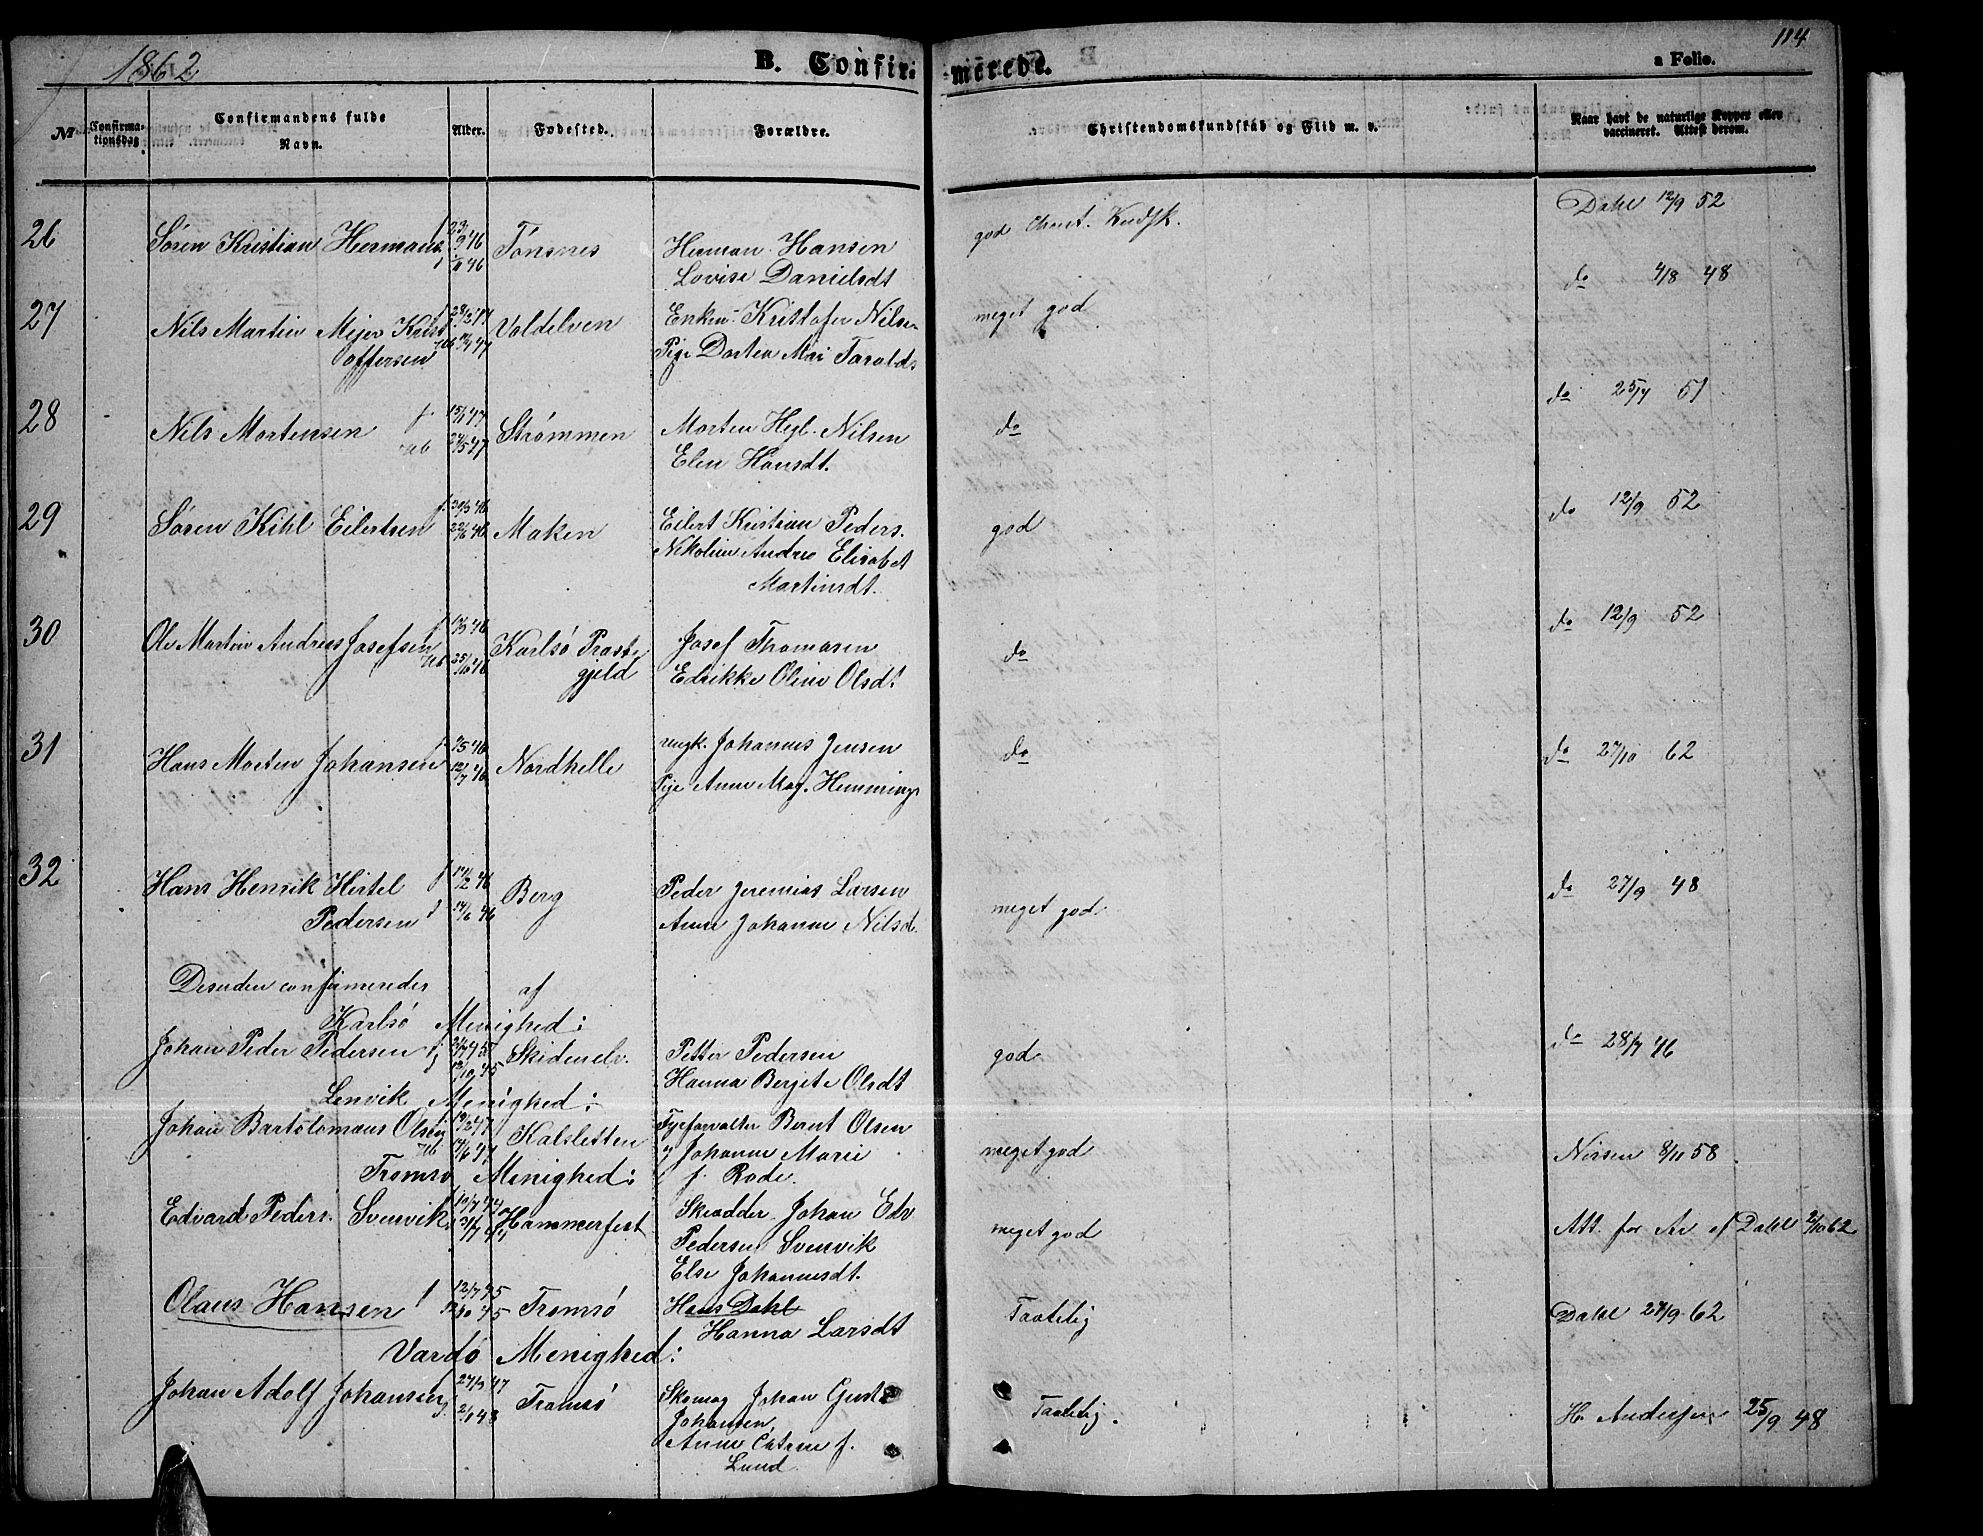 1862
B. Confirmerede.
114
a Folio.
№
Confirmationsdag
Confirmandens fulde Navn.
Alder.
Fødested.
Forældre.
Christendomskundskab og Flid m. v.
Naar havt de naturlige Kopper eller vaccineret. Attest derom.
26 Søren Kristian Hermans. 23/9 46 Tønsnes Herman Hansen god Christ. Kndsk. Dahl 12/9 52
Lovise Danielsdt
27 Nils Martin Mejer Krist Voldelven Enkem. Kristofer Nilsen meget god do 4/8 48
offersen Pige Dorten Mari Taralds
28 Nils Mortensen f 15/1 47 Strømmen Morten Hegl. Nilsen do do 25/7 51
27/5 47 Elen Hansdt.
29 Søren Kihl Eilertsen f Maken Eilert Kristian Peders. god do 12/9 52
Nikoline Andrea Elisabet
Martinsdt.
30 Ole Martin Andreas Josefsen Karlsø Præste Josef Thomasen do do 12/9 52
25/10 46 gjeld Edrikke Oline Olsdt
31 Hans Morten Johansen Nordhelle ungk. Johannes Jensen do do 27/10 62
12/7 46 Pige Anne Mag. Hemmings
32 Hans Henrik Hirtel f Berg Peder Jeremias Larsen meget god do 27/9 48
Pedersen 14/6 46 Anne Johanne Nilsd.
Desuden confirmereder af
Karlsø Menighed:
Johan Peder Pedersen Skidenelv. Petter Pedersen god do 28/7 46
Hanna Bergete Olsdt
Lenvik Menighed:
Johan Bartolomæus Olsen Kalsletten Fyrforvalter Bernt Olsen meget god 8/11 58
14/6 47 Johanne Marie
f. Rode.
Tromsø Menighed:
Edvard Peders. Svenvik Hammerfest Skrædder Johan Edv meget god Att. for Ar. af Dahl 2/10 62
Pedersen Svenvik
Else Johannesdt.
Olaus Hansen 12/7 45 Tromsø Hans Dahl Taalelig Dahl 27/9 62
Hanna Larsdt
Vardø Menighed:
Johan Adolf Johansen 27/9 47 Tromsø Skomag Johan Gust Taalelig. H. Andersen 25/9 48
2/1 48 Johansen
Anne Catrine f.
Lund